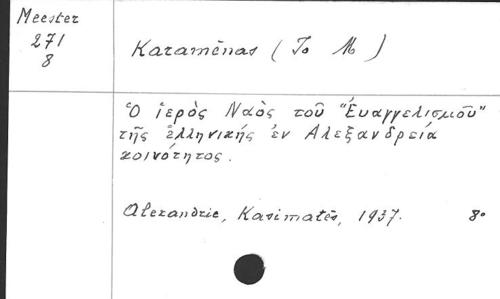 Meester
271
8
Karamēnas (Io M)
Ὁ ἱερὸς Ναὸς τοῦ "Εὐαγγελισμοῦ"
τῆς ἑλληνικῆς ἐν Ἀλεξανδρείᾳ
κοινότητος.
Alexandrie, Kasimatēs, 1937. 8º